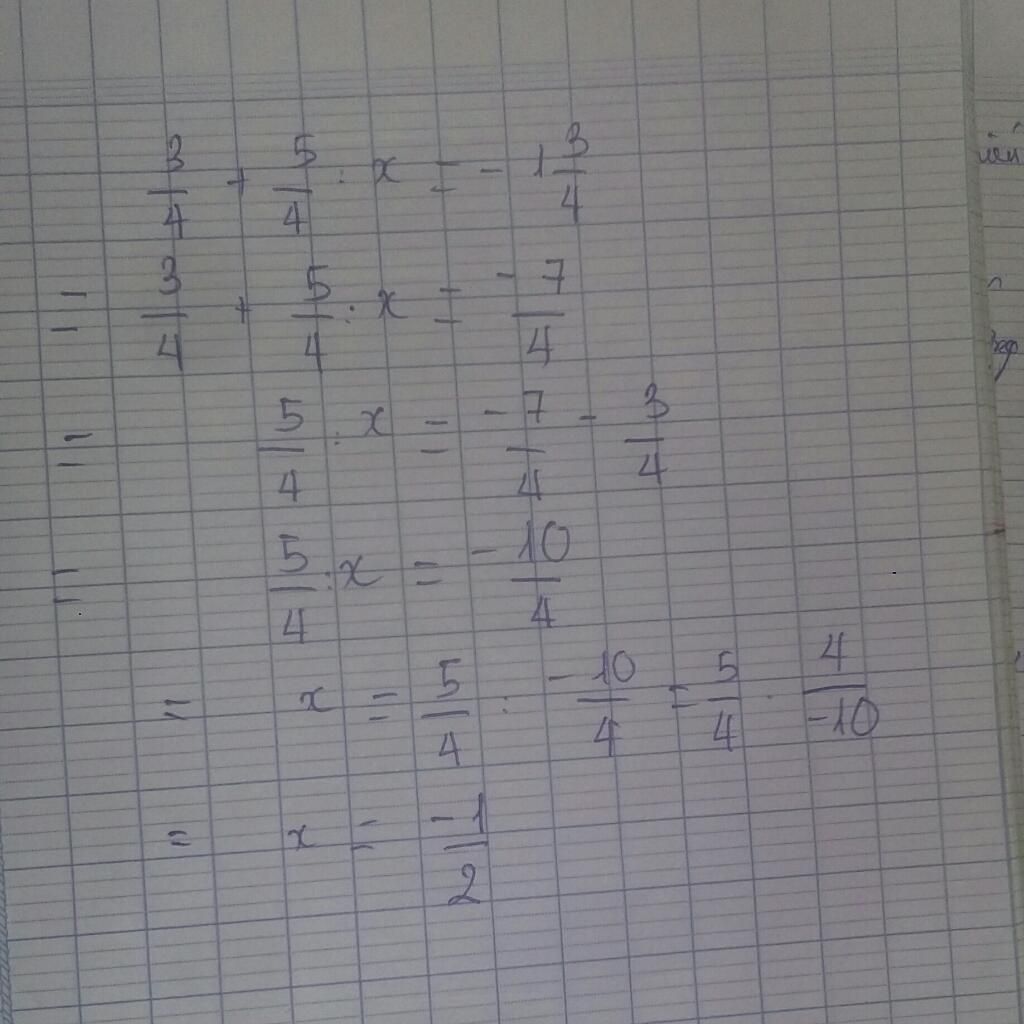 3/4 + 5/4 : x = - 1 3/4
= 3/4 + 5/4 : x = -7/4
= 5/4 : x = -7/4 - 3/4
= 5/4 : x = -10/4
= x = 5/4 : -10/4 = 5/4 · 4/-10
= x = -1/2